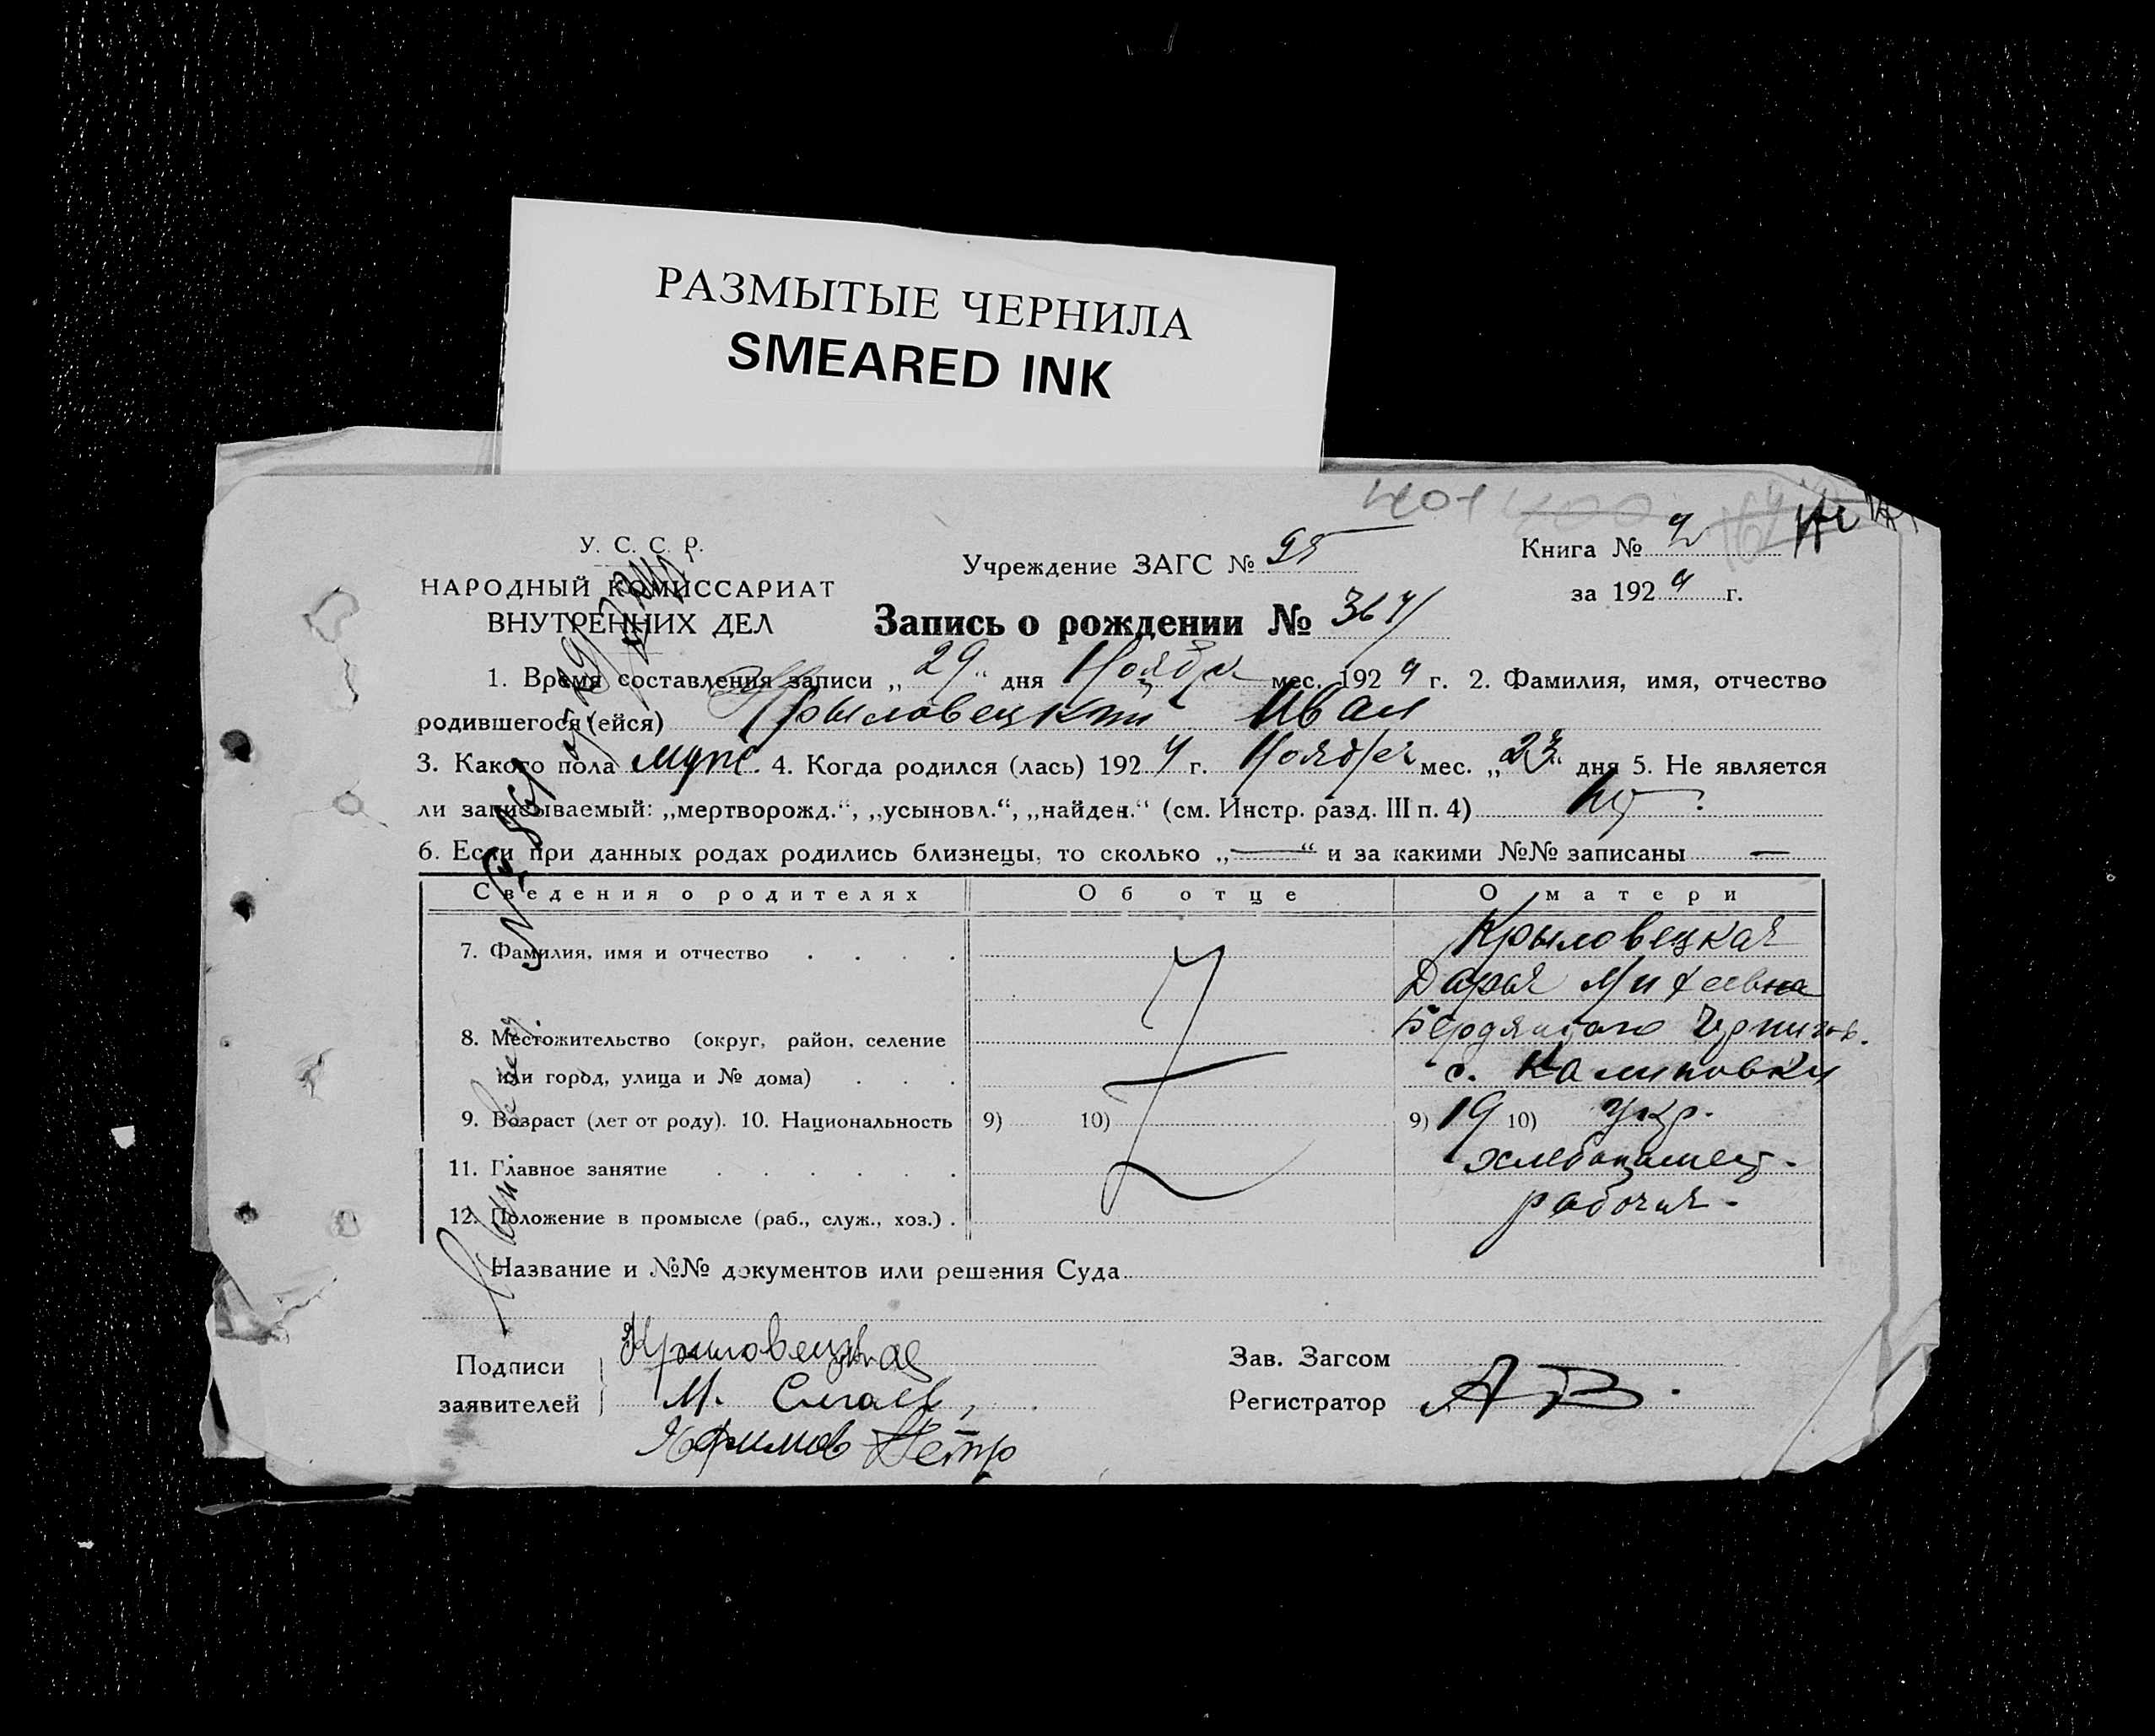 РАЗМЫТЫЕ ЧЕРНИЛА
SMEARED INK
401 400
У. С. С. Р.
НАРОДНЫЙ КОМИССАРИАТ
ВНУТРЕННИХ ДЕЛ
Учреждение ЗАГС № 95
Книга № 2
за 1924 г.
Запись о рождении № 367
1. Время составления записи „29“ дня Ноября мес. 1924 г. 2. Фамилия, имя, отчество
родившегося (ейся) Крыловецкий Иван
3. Какого пола муж. 4. Когда родился (лась) 1924 г. Ноября мес. „23“ дня 5. Не является
ли записываемый: „мертворожд.“, „усыновл.“, „найден.“ (см. Инстр. разд. III п. 4) нет.
6. Если при данных родах родились близнецы, то сколько „—“ и за какими №№ записаны —
Сведения о родителях Об отце О матери
7. Фамилия, имя и отчество . . . . Крыловецкая
Дарья Михеевна
8. Местожительство (округ, район, селение Бердянского Чернигов.
или город, улица и № дома) . . . с. Калиновки
9. Возраст (лет от роду). 10. Национальность 9) 10) 9) 19 10) укр.
11. Главное занятие . . . . . хлебопашец.
12. Положение в промысле (раб., служ., хоз.) . рабочая.
Название и №№ документов или решения Суда
Подписи
заявителей
Крыловецкая
М.
Петр
Зав. Загсом
Регистратор АВ.